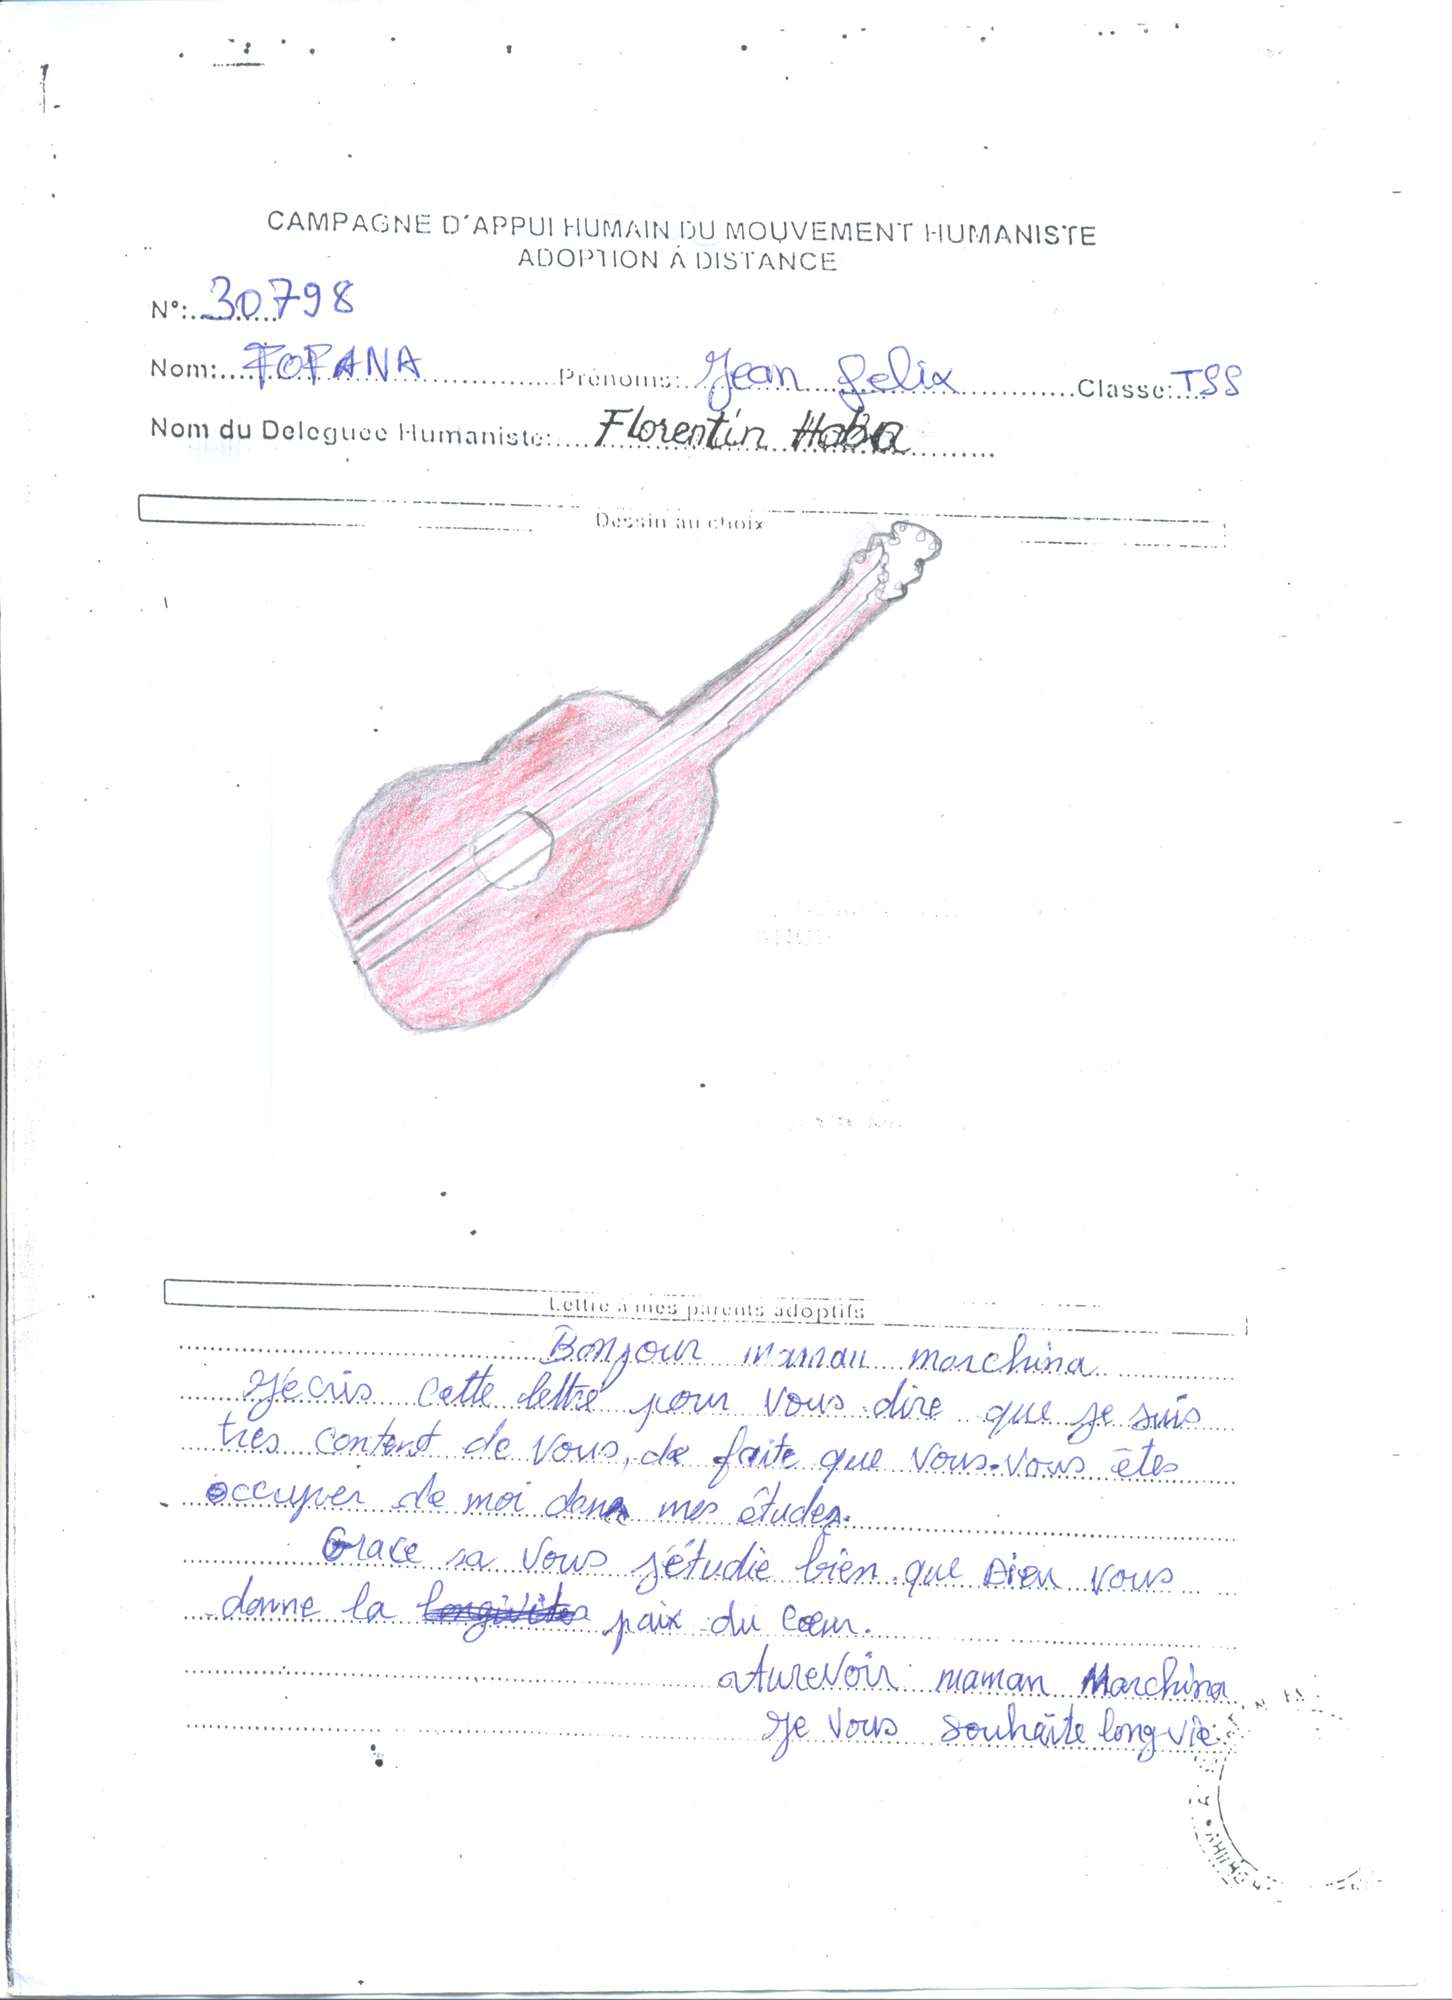 CAMPAGNE D'APPUI HUMAIN DU MOUVEMENT HUMANISTE
ADOPTION À DISTANCE
N°: 30798
Nom: FOFANA Prénoms: Jean felix Classe: TSS
Nom du Deleguee Humaniste: Florentin Haba
Dessin au choix
Lettre à mes parents adoptifs
Bonjour maman marchina
J'écris cette lettre pour vous dire que je suis
tres content de vous, de faite que vous-vous êtes
occuper de moi dans mes études.
Grace sa vous j'étudie bien que Dieu vous
donne la paix du cœur.
Aurevoir maman Marchina
Je vous souhaite long-vie